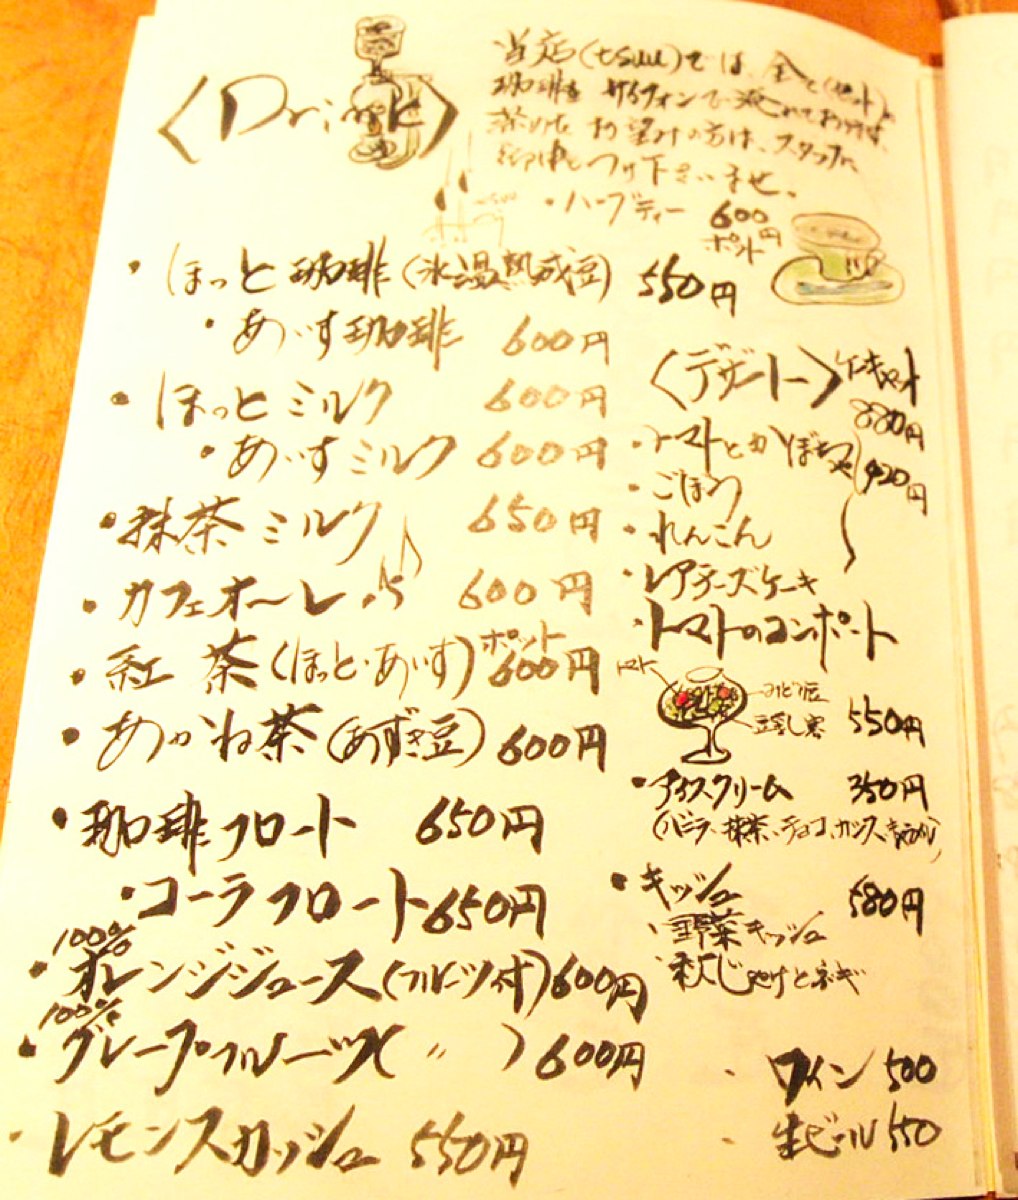 〈Drink〉
当店(tsuu)では、全て(セット)
珈琲をサイフォンで淹れております。
薄めをお望みの方は、スタッフに
お申しつけ下さいませ。
・ハーブティー 600円
ポット
・ほっと珈琲(氷温熟成豆) 550円
・あいす珈琲 600円
・ほっとミルク 600円
・あいすミルク 600円
・抹茶ミルク 650円
・カフェオーレ 600円
・紅茶(ほっと・あいす) ポット 600円
・あかね茶(あずき豆) 600円
・珈琲フロート 650円
・コーラフロート 650円
100%
・オレンジジュース(フルーツ付) 600円
100%
・グレープフルーツ( 〃 ) 600円
・レモンスカッシュ 550円
〈デザート〉 ケーキセット
880円
・トマトとかぼちゃ 420円
・ごぼう
・れんこん
・レアチーズケーキ
・トマトのコンポート
トマト
みどり豆
豆乳し寒 550円
・アイスクリーム 350円
(バニラ、抹茶、チョコ、
・キッシュ 580円
・野菜キッシュ
・秋じゃけとネギ
・ワイン 500
・生ビール 550